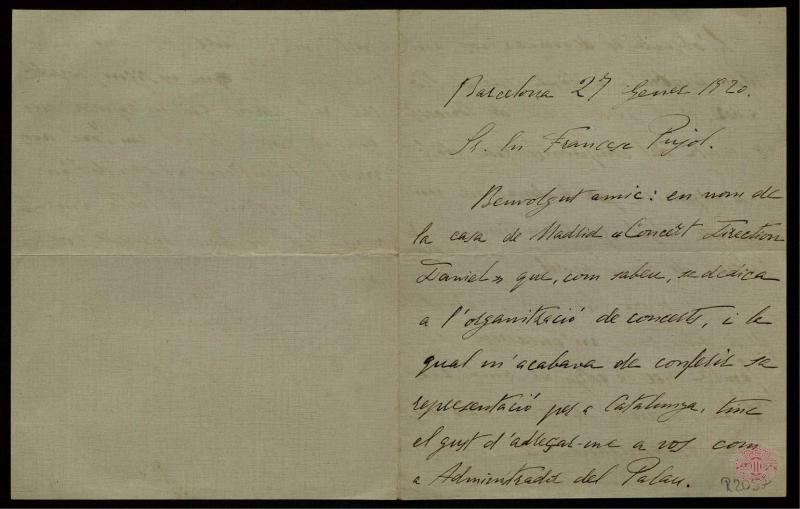 Barcelona 27 Gener 1920.
Sr. En Francesc Pujol.
Benvolgut amic: en nom de
la casa de Madrid «Concert Direction
Daniel» que, com sabeu, se dedica
a l'organització de concerts, i la
qual m'acabava de conferir sa
representació per a Catalunya, tinc
el gust d'adreçar-me a vos com
a Administrador del Palau.